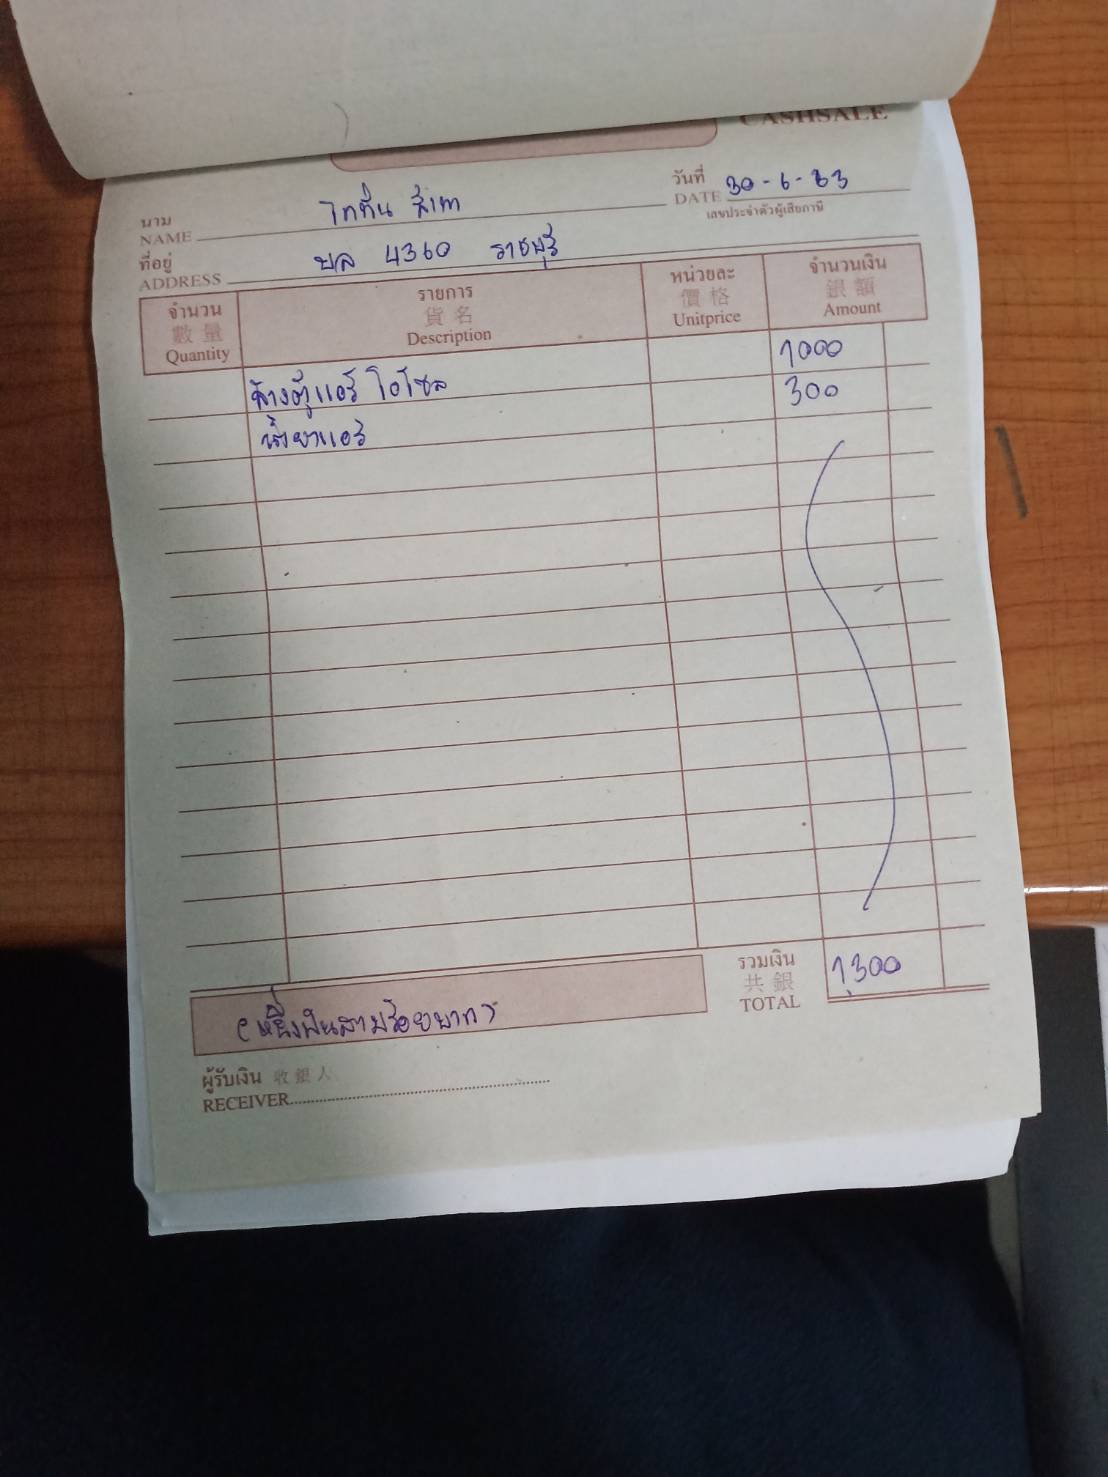 CASHSALE
วันที่
DATE 30-6-63
เลขประจำตัวผู้เสียภาษี
นาม
NAME ไททัน สีเทา
ที่อยู่
ADDRESS บล 4360 ราชบุรี
จำนวน รายการ หน่วยละ จำนวนเงิน
數量 貨名 價格 銀額
Quantity Description Unitprice Amount
ล้างตู้แอร์ โอโซล 1000
น้ำยาแอร์ 300
รวมเงิน
共銀
TOTAL 1,300
(หนึ่งพันสามร้อยบาท)
ผู้รับเงิน 收銀人
RECEIVER